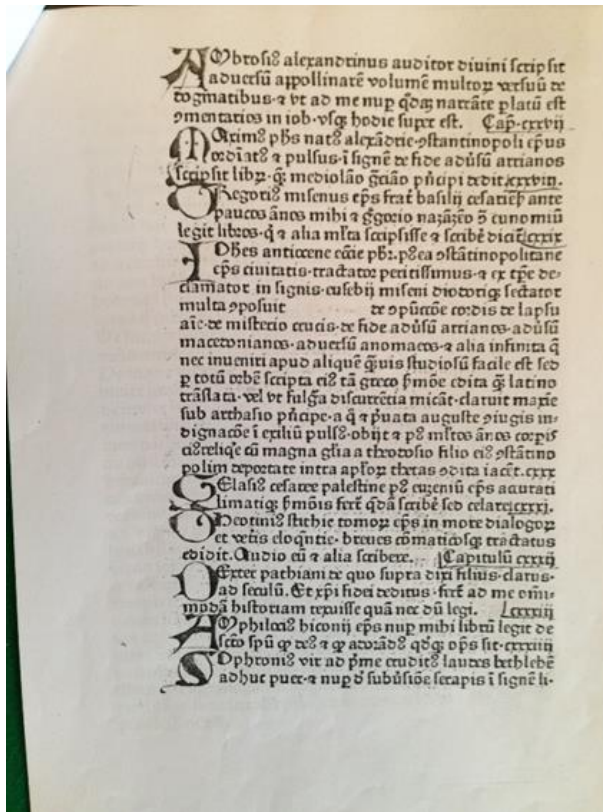 AMbrosiꝰ alexandrinus auditor divini scripsit
aduersū appollinarē volumē multoꝝ versuū de
dogmatibus·⁊ vt ad me nuꝑ q̄dā narrāte platū est
ꝯmentarios in iob·vsqꝫ hodie suꝑest est. Cap̄·cxxvij
MAximꝰ ph̄s natꝰ alexādrie·ꝯstantinopoli ep̄us
ordīatꝰ ⁊ pulsus·ī signē de fide adūsū arrianos
scripsit libꝝ·q̄ꝫ mediolāo gr̄ciāo pn̄cipi dedit.cxxviij.
GRegoriꝰ misenus ep̄s frat̄ basilij cesariēsis ante
paucos ānos mihi ⁊ gͥgorio nazāzēo ꝯ̄ eunomiū
legit libros·q̄ ⁊ alia ml̄ta scripsisse ⁊ scribē dicit̄ cxxix
IOh̄es antiocene ecc̄ie pb̄r·pꝰea ꝯstātinopolitane
ep̄s ciuitatis·tractator peritissimus·⁊ ex tp̄e de-
clamator in signis·eusebij miseni diodoriqꝫ sectator
multa ꝯposuit de ꝯpūccōe cordis de lapsu
aīe·de misterio crucis·de fide adūsū arrianos·adūsū
macedonianos·aduersū anomaeos·⁊ alia infinita q̄
nec inueniri apud aliquē q̄ꝫuis studiosū facile est sed
ꝑ totū orbē scripta eiꝰ tā greco ẜmōe edita q̄ꝫ latino
trāslata·vel vt fulg̃a discurrētia micāt·claruit maxīe
sub archasio pn̄cipe·a q̄ ⁊ pͥuata auguste ꝯiugis in-
dignacōe ī exiliū pulsꝰ·obijt ⁊ pꝰ ml̄tos ānos corpis
eiꝰ reliqͥe cū magna gl̄ia a theodosio filio eiꝰ ꝯstātino
polim deportate intra apl̄oꝝ thecas ꝯdita iacēt.cxxx
GElasiꝰ cesaree palestine pꝰ euzeniū ep̄s accurati
limatiqꝫ ẜmōis fert̄ q̄dā scribē sed celare cxxxj.
THeotiniꝰ stichie tomoꝝ ep̄s in more dialogoꝝ
et vetīs eloq̄ntie·breues cōmaticosqꝫ tractatus
edidit. Audio eū ⁊ alia scribere. Capitulū cxxxij
DExter pathiani de quo supra dixi filius·clarus·
ad seculū. Et xp̄i fidei deditus·fert̄ ad me omī-
modā historiam texuisse quā nec dū legi. cxxxiij
AMphilociꝰ hiconij ep̄s nuꝑ mihi librū legit de
sc̄to spū ꝙ deꝰ ⁊ ꝙ adorādꝰ qd̄qꝫ op̄s sit·cxxxiiij
SOphroniꝰ vir ad pͥme eruditꝰ laudes bethleē
adhuc puer·⁊ nuꝑ ꝺ̄ subūsiōe serapis ī signē li-